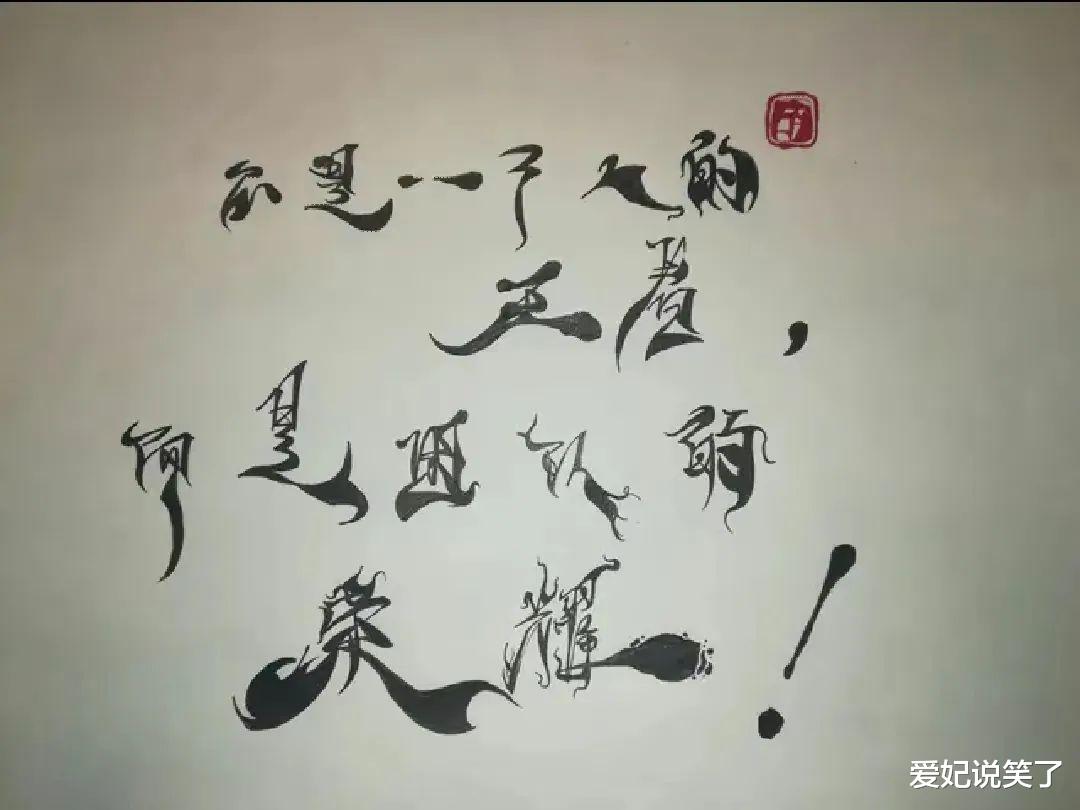 不是一个人的
王者，
而是团队的
荣耀！
爱妃说笑了